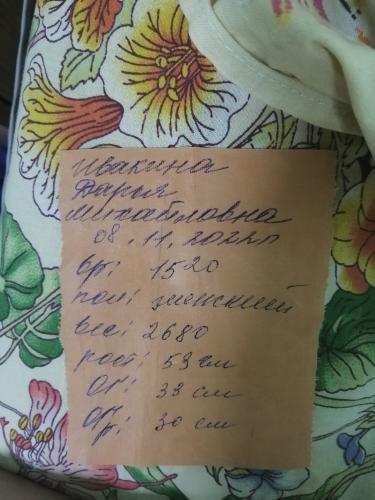 Ивакина
Дарья
Михайловна
08.11.2022г
вр: 15²⁰
пол: женский
вес: 2680
рост: 53 см
ОГ: 33 см
ОГр: 30 см